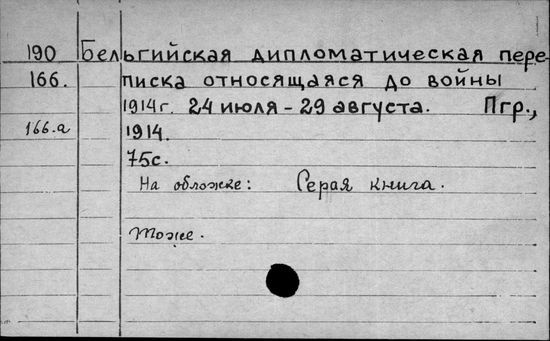 190 Бельгийская дипломатическая пере-
166. писка относящаяся до войны
1914г. 24 июля - 29 августа. Пгр.,
166.а 1914.
75с.
На обложке: Серая книга.
Тоже.